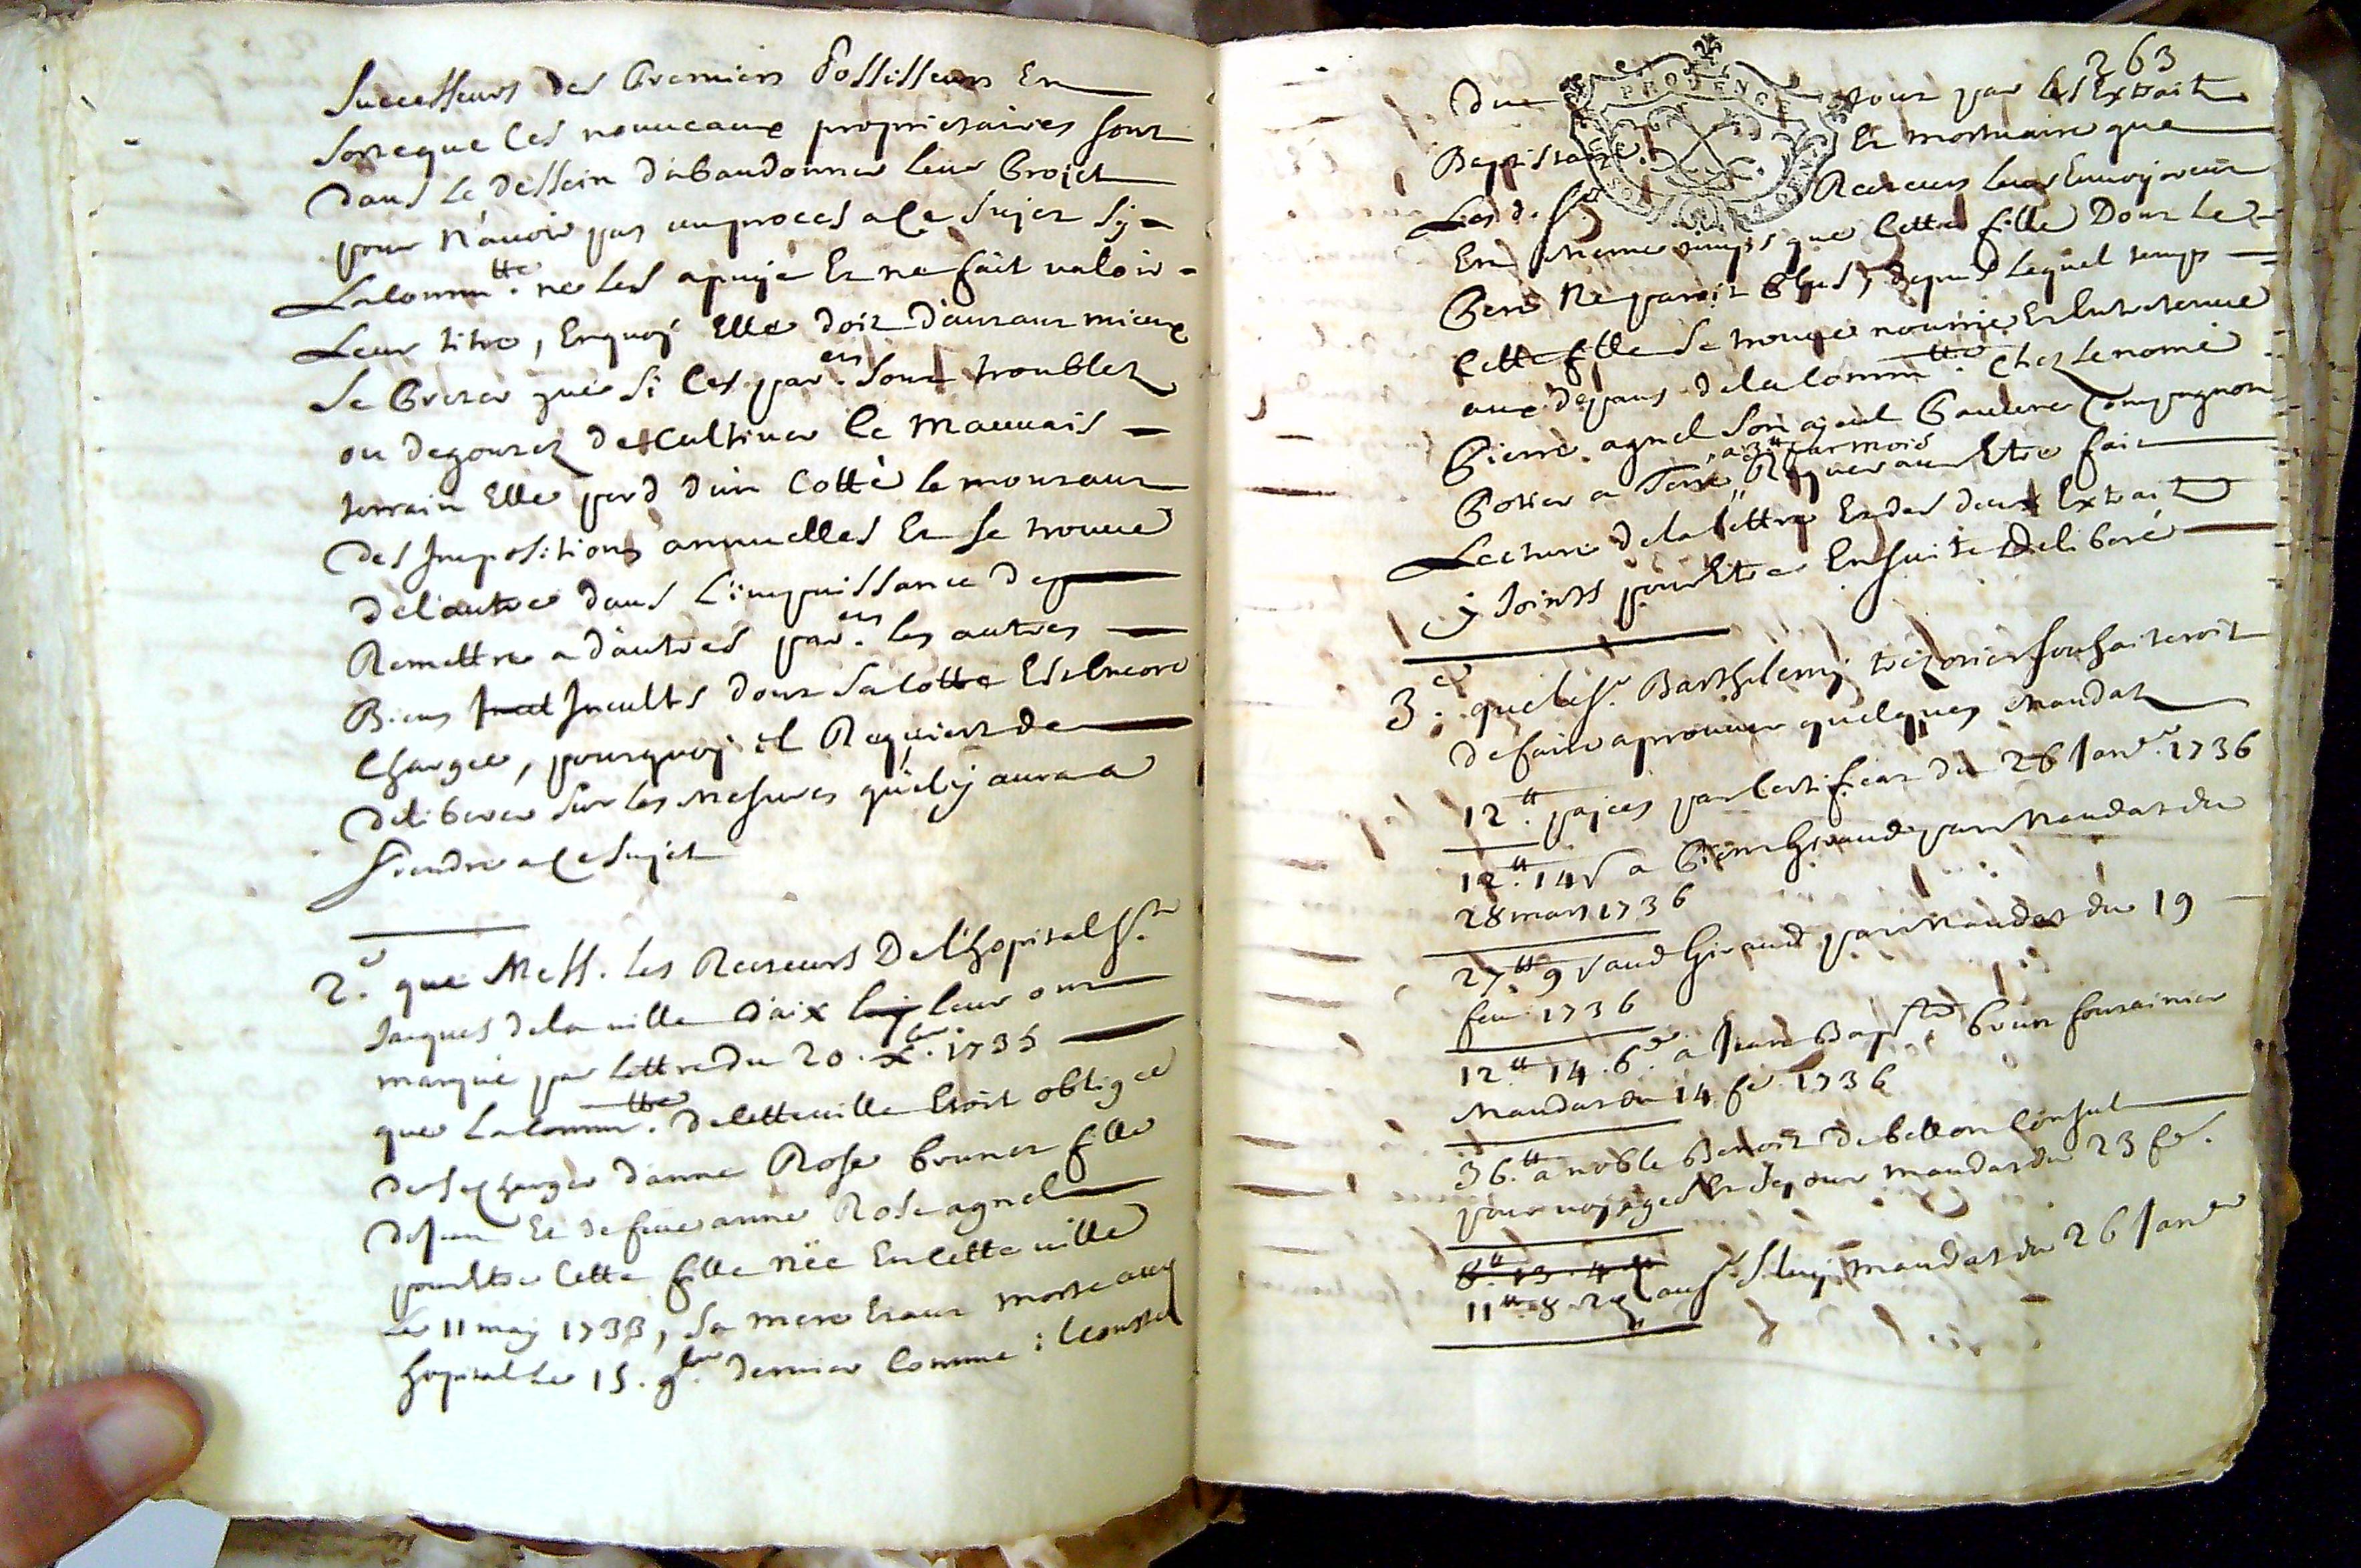 Successeurs des Premiers Possesseurs En
sorteque Ces nouueaux proprietaires sont
dans le dessein d'abandonner leur Projet
pour n'auoir pas un proces a Ce Sujet sy
La Comm.tte ne les apuye Et ne fait ualoir
Leur titre, Enquoy Elle doit d'autant mieux
se Preter que si Ces par.ers sont troublez
ou degoutez de Cultiuer Ce Mauuais
terrain Elle perd d'un Cotté le montant
des Impositions annuelles Et se trouue
de l'autre dans L'impuissance de
Remettre a d'autres par.ers les autres
Biens Incultes dont sa Cotte Est Encore
Chargée, pourquoy il Requiert de
deliberer sur les Mesures qu'il y aura a
Prendre a Ce Sujet
2.e que Mess. les Recteurs De l'hopital S.t
Jacques de la uille d'aix leur ont
marqué par Lettre du 20. X.bre 1735
que La Comm.tte de Cette uille Etoit obligée
de se Charger d'anne Rose Brunet fille
de Jean Et de feue anne Rose agnel
pour Etre Cette fille Née En Cette uille
Le 11 may 1733, Sa mere Etant morte aud
hopital Le 15. 9.bre dernier Comme il Conste
263
PROVENCE
due tout par les Extraits
Baptistaire Et mortuaire que
Les d. S.rs Recteurs leur Enuoyerent
En meme temps que Cette fille Dont Le
Pere Ne paroit Plus, depuis Lequel temps
Cette fille se trouue nourrie Et Entretenue
aux depans de la Comm.tte Chez le nomé
Pierre agnel Son ajeul Pauure Compagnon
a 3 tt par mois
Potier a Terre, Requerant Etre fait
Lecture de la Lettre Et des deux Extraits
y Joints pour Etre Ensuite Deliberé
3.e que le S.r Barthelemy trezorier souhaiteroit
de faire aprouuer quelques Mandats
12.tt payées par Certificat du 26 Janv.er 1736
12.tt 14 s a Pierre Giraud par Mandat du
28 mars 1736
27.tt 9 s aud Giraud par Mandat du 19
feu. 1736
12.tt 14. 6.d a Jean Bap.te Brun fontainier
Mandat du 14 fe. 1736
36.tt a noble Benoit de bellon Consul
pour uoyages Et sejour mandat du 23 fe.
8.tt 13. 4
11.tt 8 au S. luy mandat du 26 Janv.er